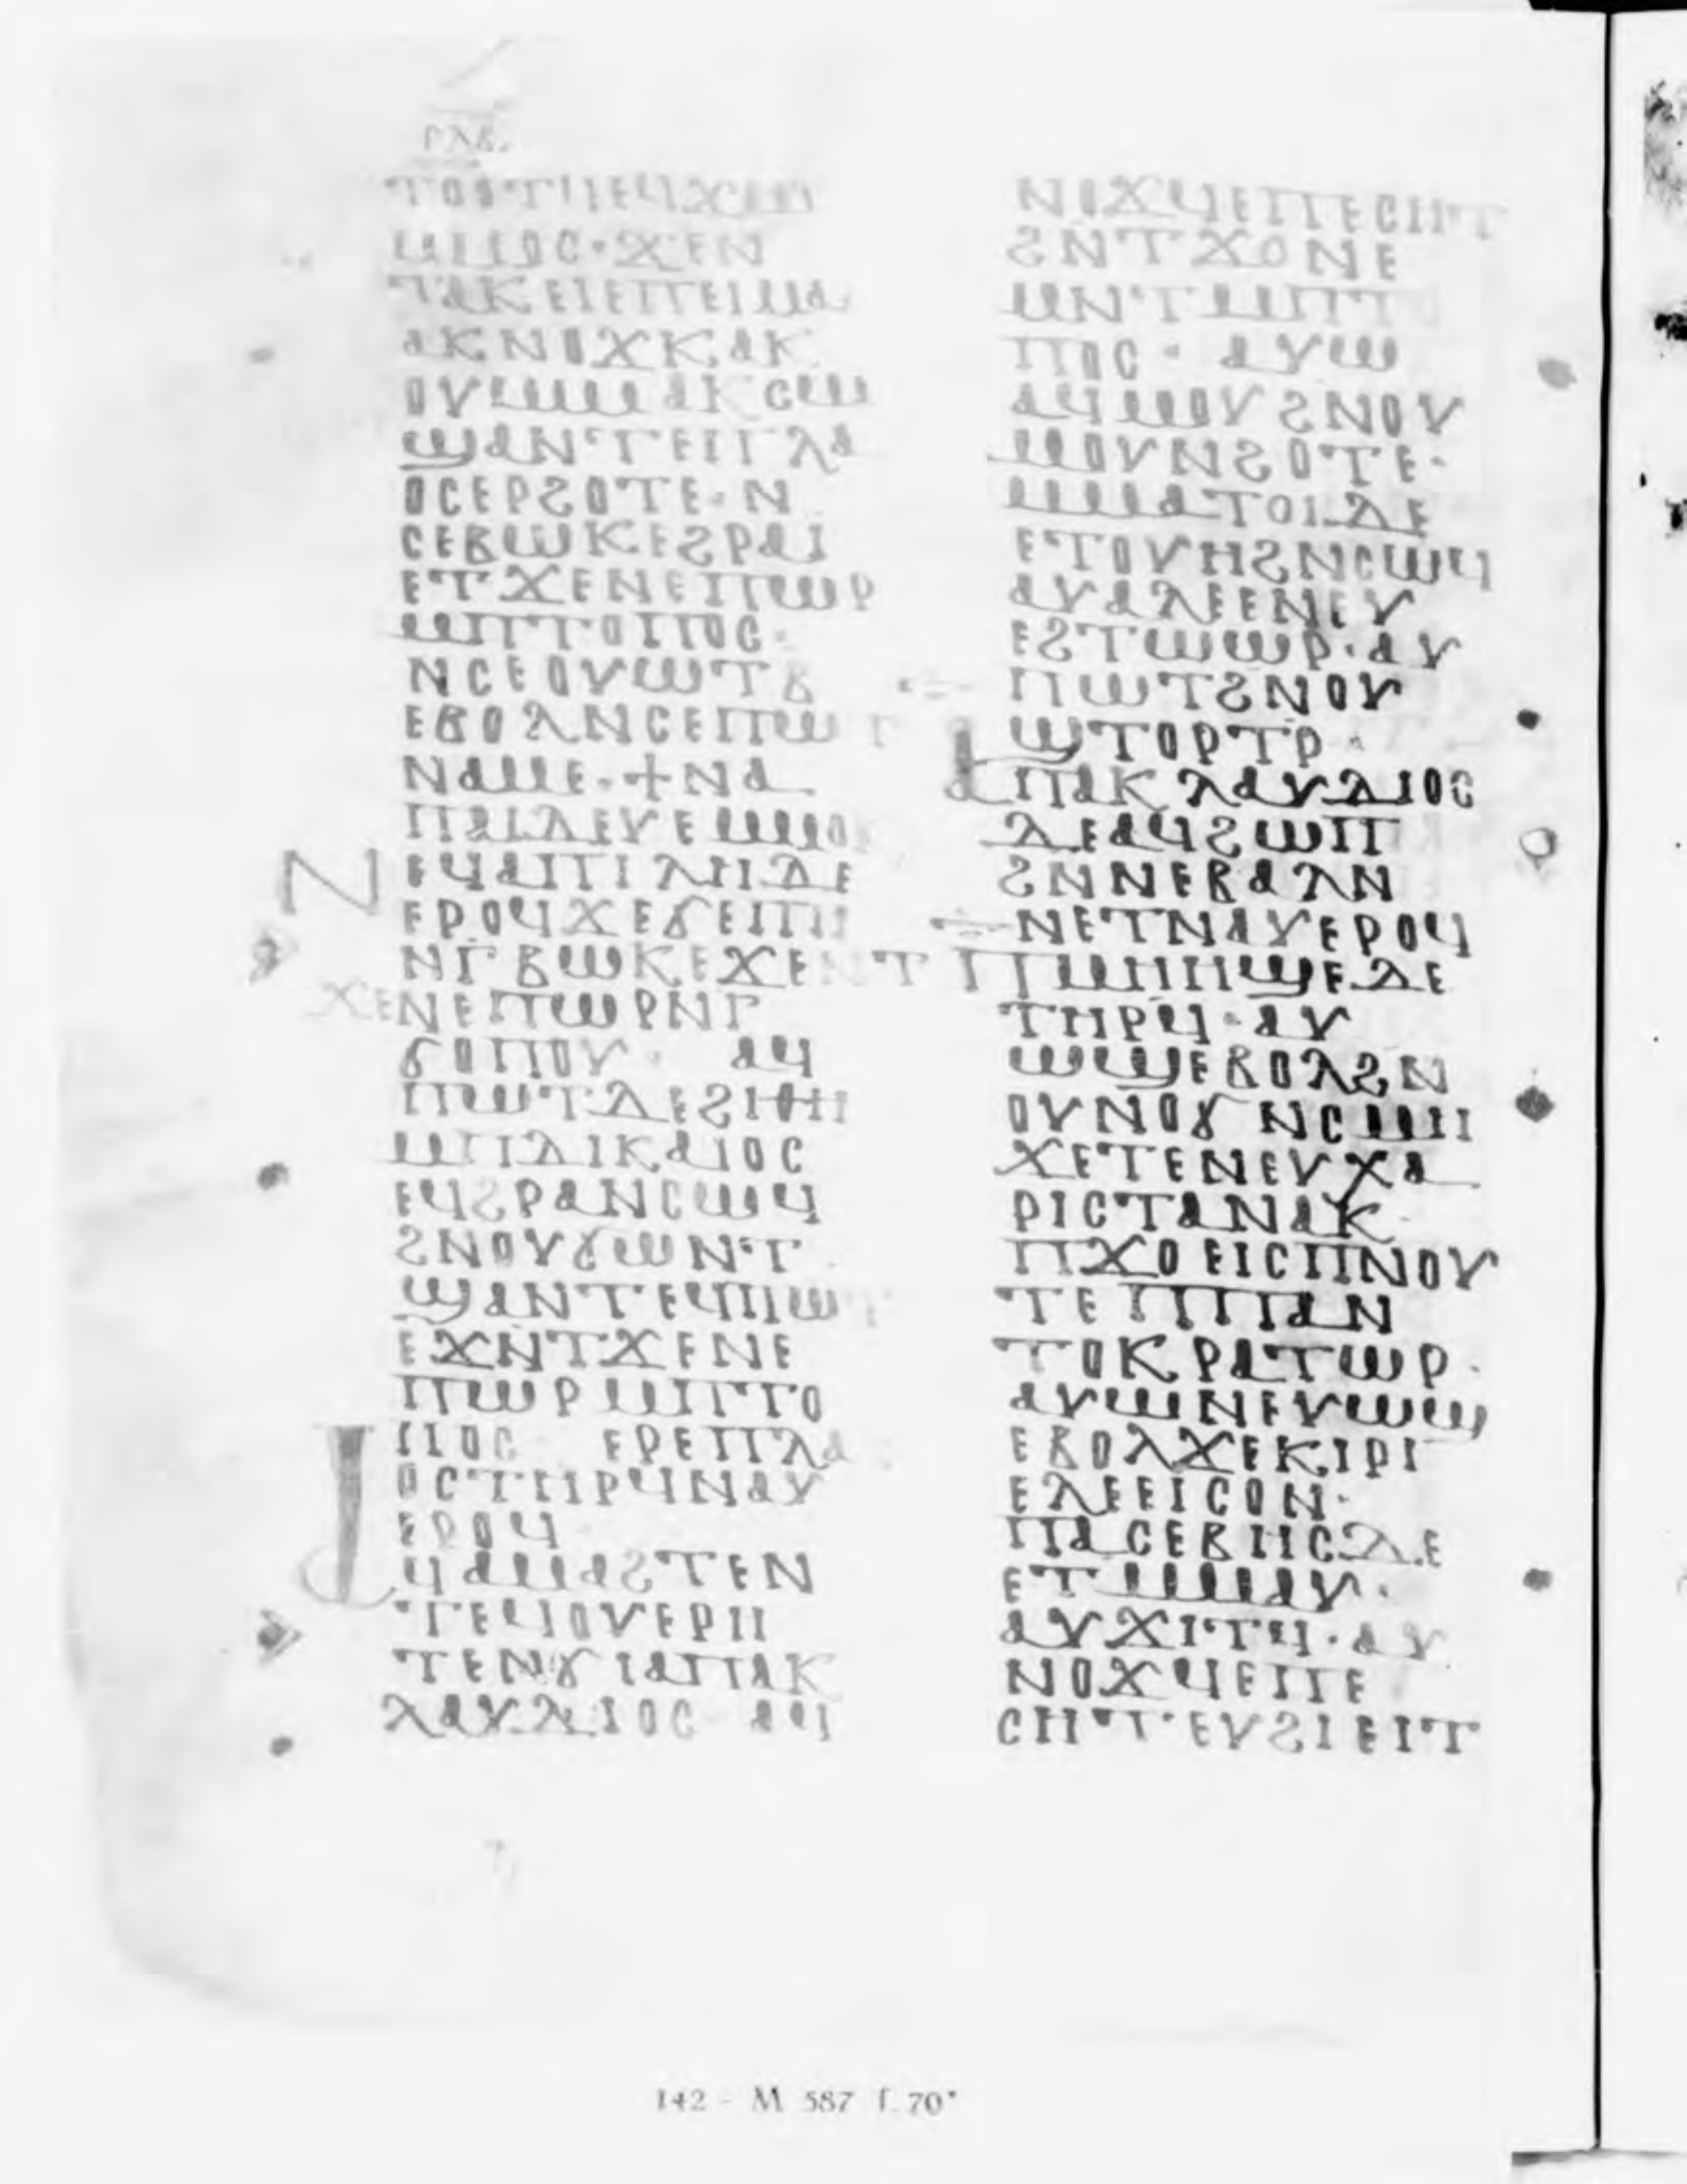 ⲣⲗⲃ
ⲧⲟⲟⲧⲡⲉϥϫⲱ
ⲙⲙⲟⲥ·ϫⲉⲛ
ⲧⲁⲕⲉⲓⲉⲡⲉⲓⲙⲁ
ⲁⲕⲛⲟϫⲕ ⲁⲕ
ⲟⲩⲙⲙⲁⲕ ⲥⲱ
ϣⲁⲛⲧⲉⲡⲗⲁ
ⲟⲥⲉⲣϩⲟⲧⲉ·ⲛ
ⲥⲉⲃⲱⲕⲉϩⲣⲁⲓ
ⲉⲧϫⲉⲛⲉⲡⲱⲣ
ⲙⲡⲧⲟⲡⲟⲥ·
ⲛⲥⲉⲟⲩⲱⲧⲃ
ⲉⲃⲟⲗⲛⲥⲉⲡⲱⲧ
ⲛⲁⲙⲉ·ϯⲛⲁ
ⲡⲁⲓⲇⲉⲩⲉⲙⲙⲟϥ
ⲉϥⲁⲡⲓⲗⲏⲇⲉ
ⲉⲣⲟϥϫⲉϭⲉⲡⲏ
ⲛⲅⲃⲱⲕⲉϫⲉⲛⲧ
ϫⲉⲛⲉⲡⲱⲣⲛⲅ
ϭⲟⲡⲟⲩ· ⲁϥ
ⲡⲱⲧⲇⲉϩⲓⲑⲏ
ⲙⲡⲇⲓⲕⲁⲓⲟⲥ
ⲉϥϩⲣⲁⲛⲥⲱϥ
ϩⲛⲟⲩϭⲱⲛⲧ·
ϣⲁⲛⲧⲉϥⲡⲱⲧ
ⲉϫⲛⲧϫⲉⲛⲉ
ⲡⲱⲣⲙⲡⲧⲟ
ⲡⲟⲥ ⲉⲣⲉⲡⲗⲁ
ⲟⲥⲧⲏⲣϥⲛⲁⲩ
ⲉⲣⲟϥ
ϥⲁⲙⲁϩⲧⲉⲛ
ⲧⲉϥⲟⲩⲉⲣⲏ
ⲧⲉⲛϭⲓⲁⲡⲁⲕ
ⲗⲁⲩⲇⲓⲟⲥ ⲁϥ
ⲛⲟϫϥⲉⲡⲉⲥⲏⲧ
ϩⲛⲧϫⲟⲛⲉ
ⲙⲛⲧⲙⲡⲧ
ⲡⲟⲥ· ⲁⲩⲱ
ⲁϥⲙⲟⲩ ϩⲛⲟⲩ
ⲙⲟⲩⲛϩⲟⲧⲉ·
ⲙⲙⲁⲧⲟⲓⲇⲉ
ⲉⲧⲟⲩⲏϩⲛⲥⲱϥ
ⲁⲩⲁⲗⲉⲉⲛⲉⲩ
ⲉϩⲧⲱⲱⲣ·ⲁⲩ
ⲡⲱⲧϩⲛⲟⲩ
ϣⲧⲟⲣⲧⲣ·
ⲁⲡⲁⲕⲗⲁⲩⲇⲓⲟⲥ
ⲇⲉⲁϥϩⲱⲡ
ϩⲛⲛⲉⲃⲁⲗⲛ
ⲛⲉⲧⲛⲁⲩⲉⲣⲟϥ
ⲡⲙⲏⲏϣⲉⲇⲉ
ⲧⲏⲣϥ·ⲁⲩ
ⲱϣⲉⲃⲟⲗϩⲛ
ⲟⲩⲛⲟϭ ⲛⲥⲙⲏ
ϫⲉⲧⲉⲛⲉⲩⲭⲁ
ⲣⲓⲥⲧⲁⲛⲁⲕ
ⲡϫⲟⲉⲓⲥⲡⲛⲟⲩ
ⲧⲉ ⲡⲡⲁⲛ
ⲧⲟⲕⲣⲁⲧⲱⲣ·
ⲁⲩⲱⲛⲉⲩⲱϣ
ⲉⲃⲟⲗϫⲉⲕⲓⲣⲓ
ⲉⲗⲉⲉⲓⲥⲟⲛ·
ⲡⲁⲥⲉⲃⲏⲥⲇⲉ
ⲉⲧⲙⲙⲁⲩ·
ⲁⲩϫⲓⲧϥ·ⲁⲩ
ⲛⲟϫϥⲉⲡⲉ
ⲥⲏⲧ·ⲉⲩϩⲓⲉⲓⲧ
142 - M 587 f. 70ᵛ